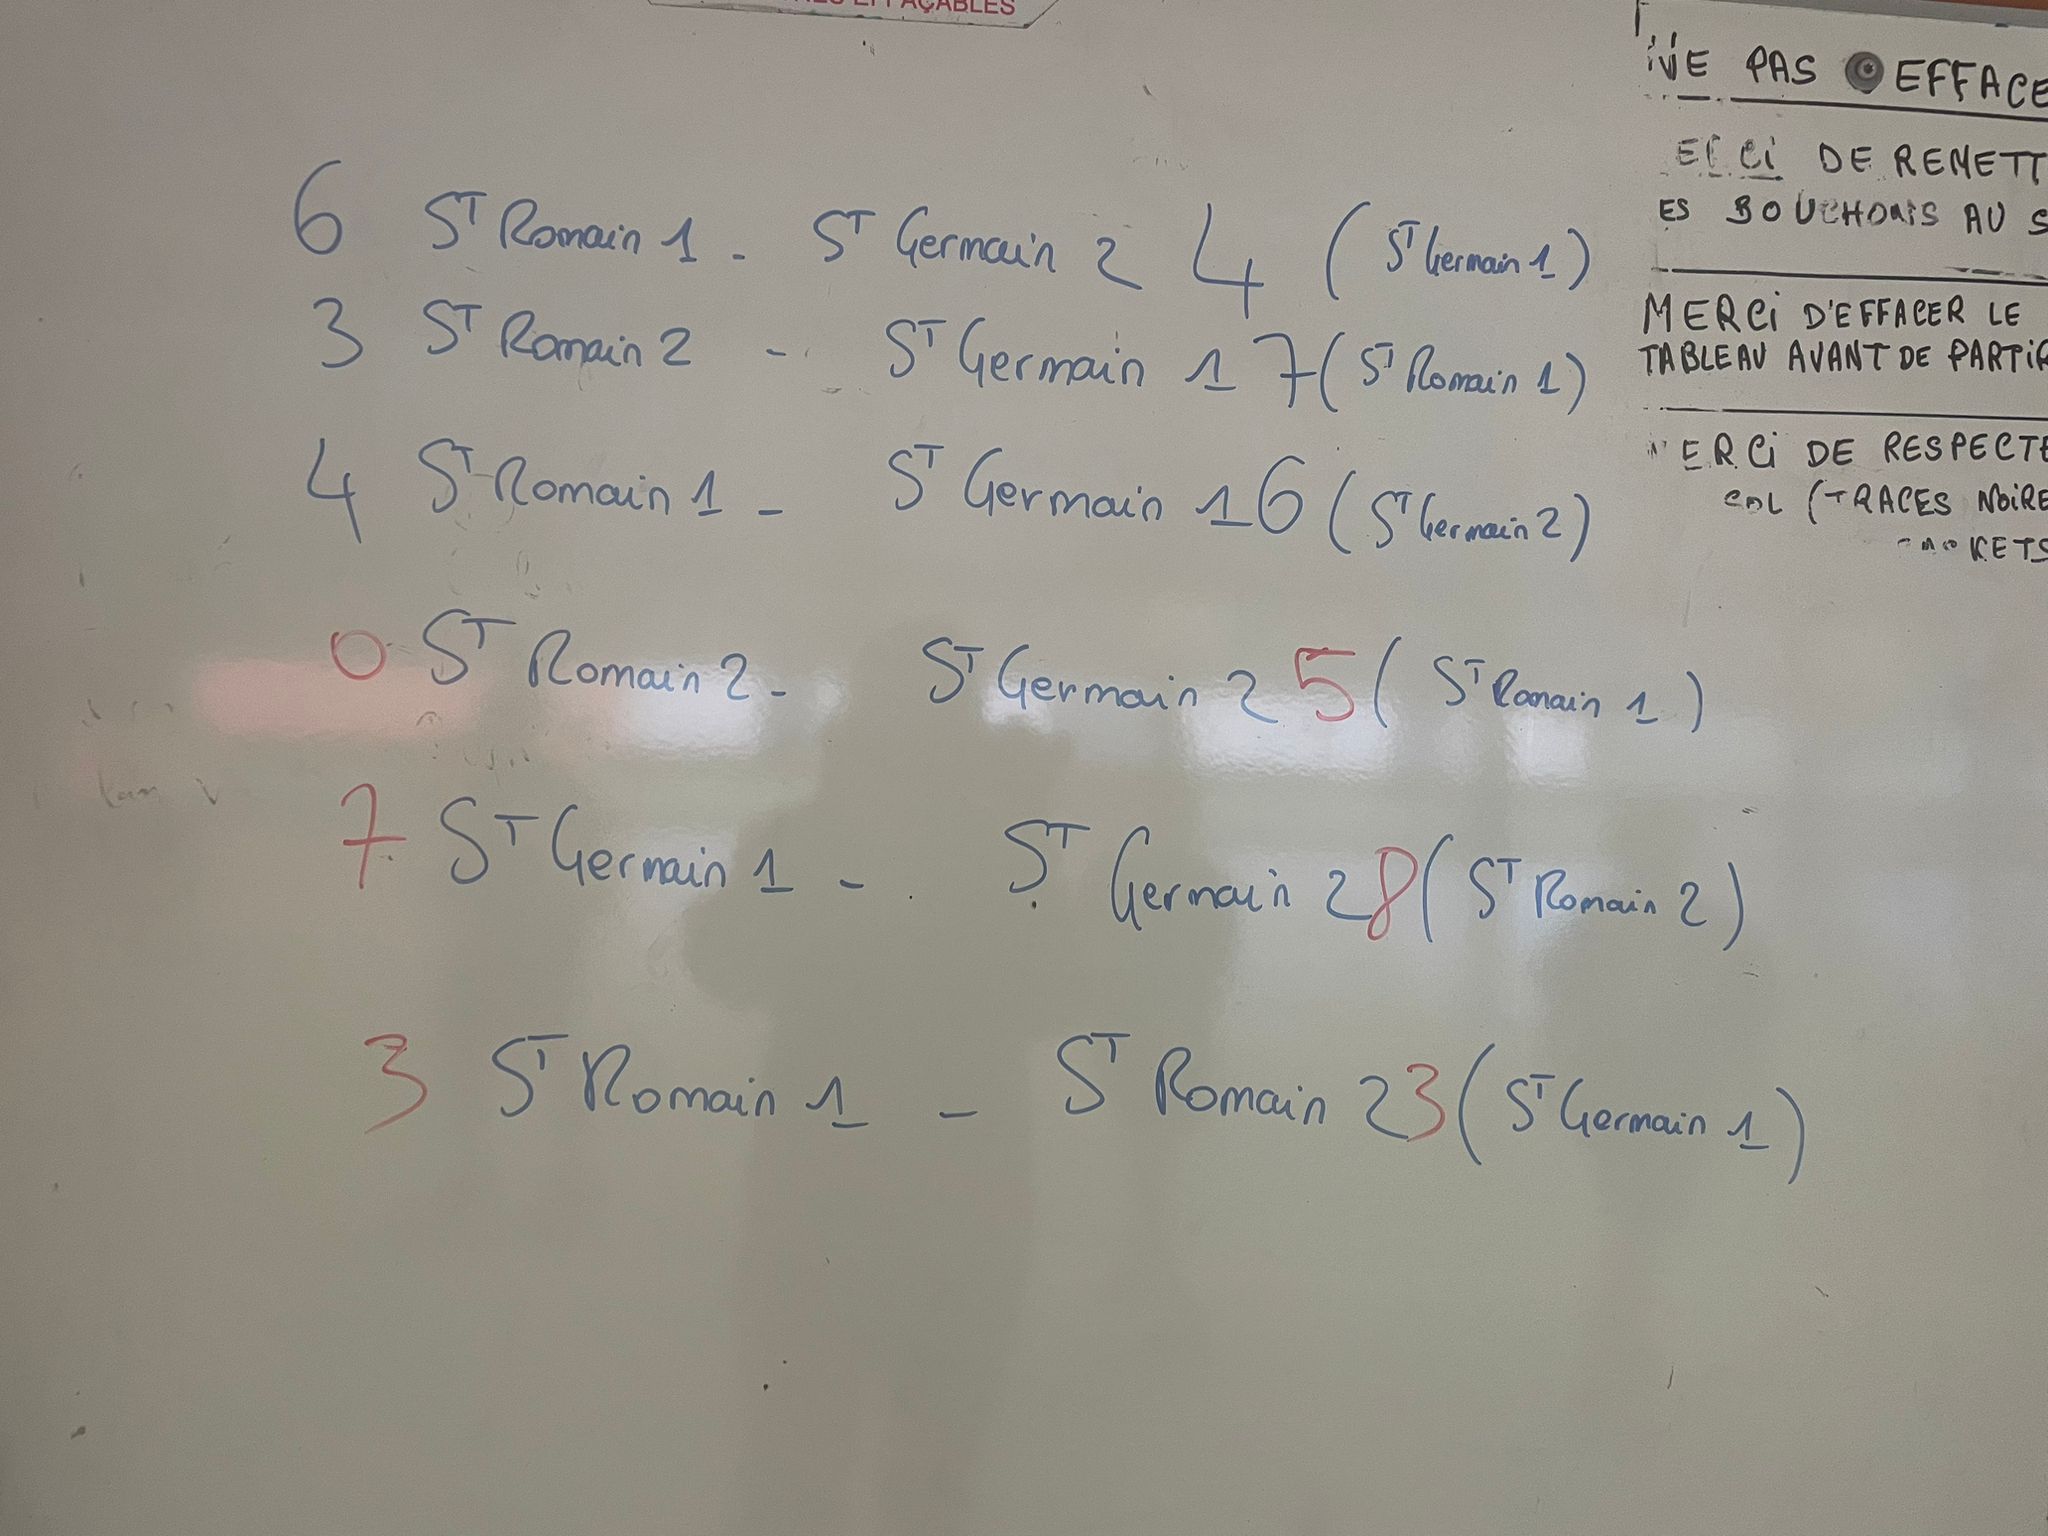 EFFAÇABLES
6 ST Romain 1 - ST Germain 2 4 (ST Germain 1)
3 ST Romain 2 - ST Germain 1 7 (ST Romain 1)
4 ST Romain 1 - ST Germain 1 6 (ST Germain 2)
0 ST Romain 2 - ST Germain 2 5 (ST Romain 1)
7 ST Germain 1 - ST Germain 2 8 (ST Romain 2)
3 ST Romain 1 - ST Romain 2 3 (ST Germain 1)
NE PAS EFFACE
ERCi DE REMETT
ES BOUCHONS AU S
MERCi D'EFFACER LE
TABLEAU AVANT DE PARTiR
ERCi DE RESPECTE
(TRACES NOiRE